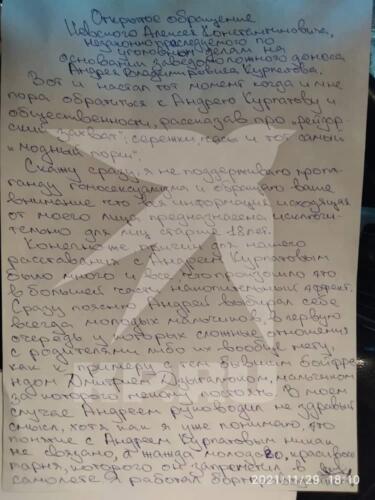 Открытое обращение
Невского Алексея Константиновича,
незаконно преследуемого по
уголовным делам на
основании заведомо ложного доноса
Андрея Владимировича Курпатова.
Вот и настал тот момент когда и мне
пора обратиться к Андрею Курпатову и
общественности, рассказав про „рейдер
ский захват", сережки, часы и тот самый
„модный порш".
Скажу сразу, я не поддерживаю пропа-
ганду гомосексуализма и обращаю ваше
внимание что вся информация исходящая
от моего лица предназначена исключи-
тельно для лиц старше 18 лет.
Конечно же причин для нашего
расставания с Андреем Курпатовым
было много и все что произошло это
в большей части накопительный эффект.
Сразу поясню Андрей выбирал себе
всегда молодых мальчиков, в первую
очередь у которых сложные отношения
с родителями либо их вообще нету,
как к примеру с тем бывшим бойфре
ндом Дмитрием мальчиком
за которого постоял. В моем
случае Андреем руководил не здравый
смысл, хотя как я уже понимаю, это
понятие с Андреем Курпатовым никак
не связано, а жажда молодого, красивого
парня, которого он запреметил в
самолете я работал бортпро
2021/11/29